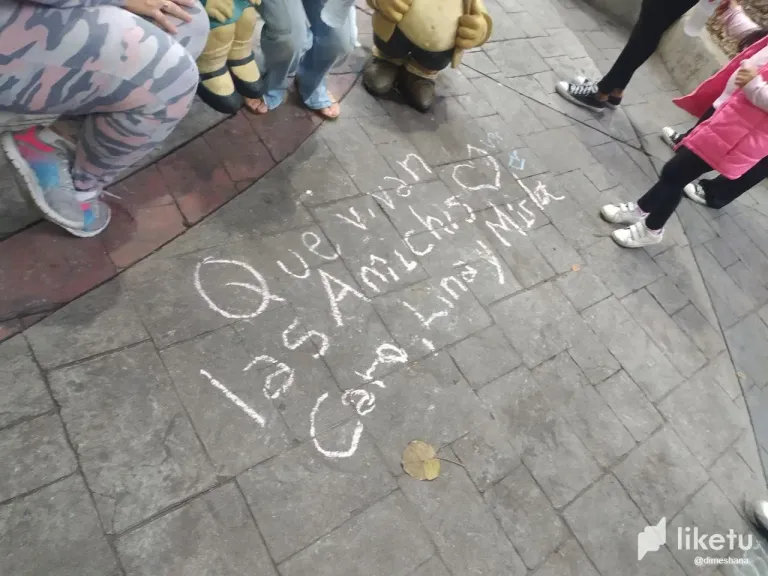 Que vivan
las Amichis
Caro, Lina y Mista
liketu
@dimeshana